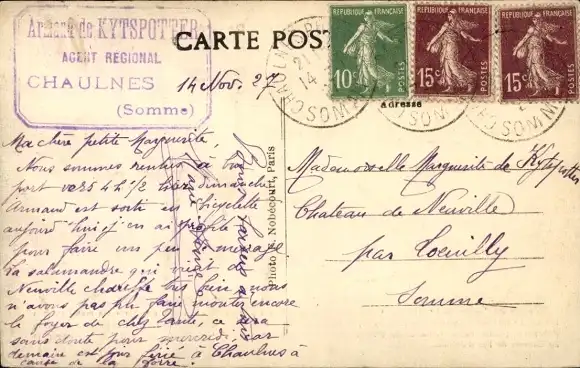 Armand de KYTSPOTTER
AGENT RÉGIONAL
CHAULNES
(Somme)
CARTE POST
RÉPUBLIQUE FRANÇAISE
10c
POSTES
RÉPUBLIQUE FRANÇAISE
15c
POSTES
RÉPUBLIQUE FRANÇAISE
15c
POSTES
CHAULNES
SOMME
Adresse
14 Nov. 27
Ma chère petite Marguerite,
Nous sommes rentrés à bon
port vers 4 h 1/2 hier dimanche
Armand est sorti en bicyclette
aujourd'hui j'en ai profité
pour faire un peu de ménage
la salamandre qui vient de
Neuville chauffe très bien nous
n'avons pas pu faire monter encore
le foyer de chez tante, ce sera
sans doute pour mercredi, car
demain est jour férié à Chaulnes à
cause de la foire.
Bons baisers
Photo Nobécourt, Paris
Mademoiselle Marguerite de Kytspotter
Chateau de Neuville
par Loeuilly
Somme